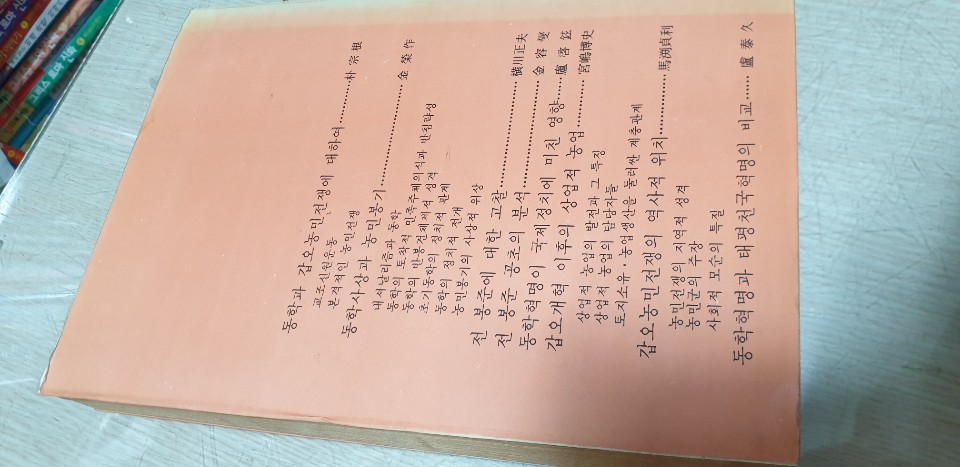 동학과 갑오농민전쟁에 대하여………朴宗根
교조신원운동
본격적인 농민전쟁
동학사상과 농민봉기………金榮作
내셔널리즘과 동학
동학의 토착적 민족주체의식과 반침략성
동학의 반봉건체제적 성격
초기동학의 정치적 관계
동학의 정치적 전개
농민봉기의 사상적 위상
전 봉준에 대한 고찰………橫川正夫
전 봉준 공초의 분석………金容燮
동학혁명이 국제정치에 미친 영향……盧啓鉉
갑오개혁 이후의 상업적 농업……宮嶋博史
상업적 농업의 발전과 그 특징
상업적 농업의 담당자들
토지소유·농업생산을 둘러싼 계층관계
갑오농민전쟁의 역사적 위치………馬淵貞利
농민전쟁의 지역적 성격
농민군의 주장
사회적 모순의 특질
동학혁명과 태평천국혁명의 비교……盧泰久
그리스 로마 신화